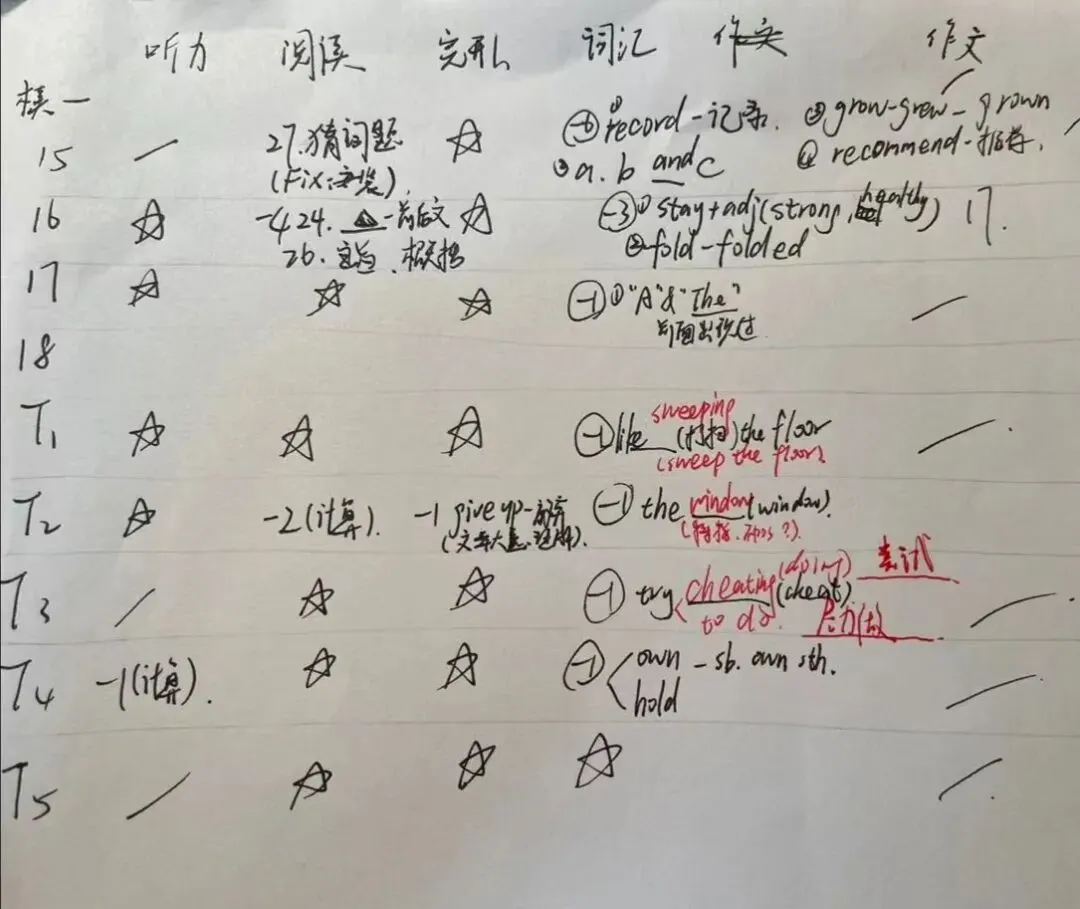 听力 阅读 完形 词汇 作文 作文
模一
15 27.猜词题 ①record-记录. ③grow-grew-grown
(Fix:安装) ②a.b and c ④recommend-推荐.
16 -4 24. -前后文 -3 ①stay+adj(strong, healthy) 17.
26. 主旨、概括 ②fold-folded
17 -1 ①"A"&"The"
前面出现过
18
sweeping
T1 -1 like (打扫) the floor
(sweep the floor).
T2 -2(计算). -1 give up-放弃 -1 the window(window).
(文章大意理解).
T3 -1 try cheating(doing) (cheat) 尝试
to do. 尽力做
T4 -1(计算). -1 own - sb. own sth.
hold
T5